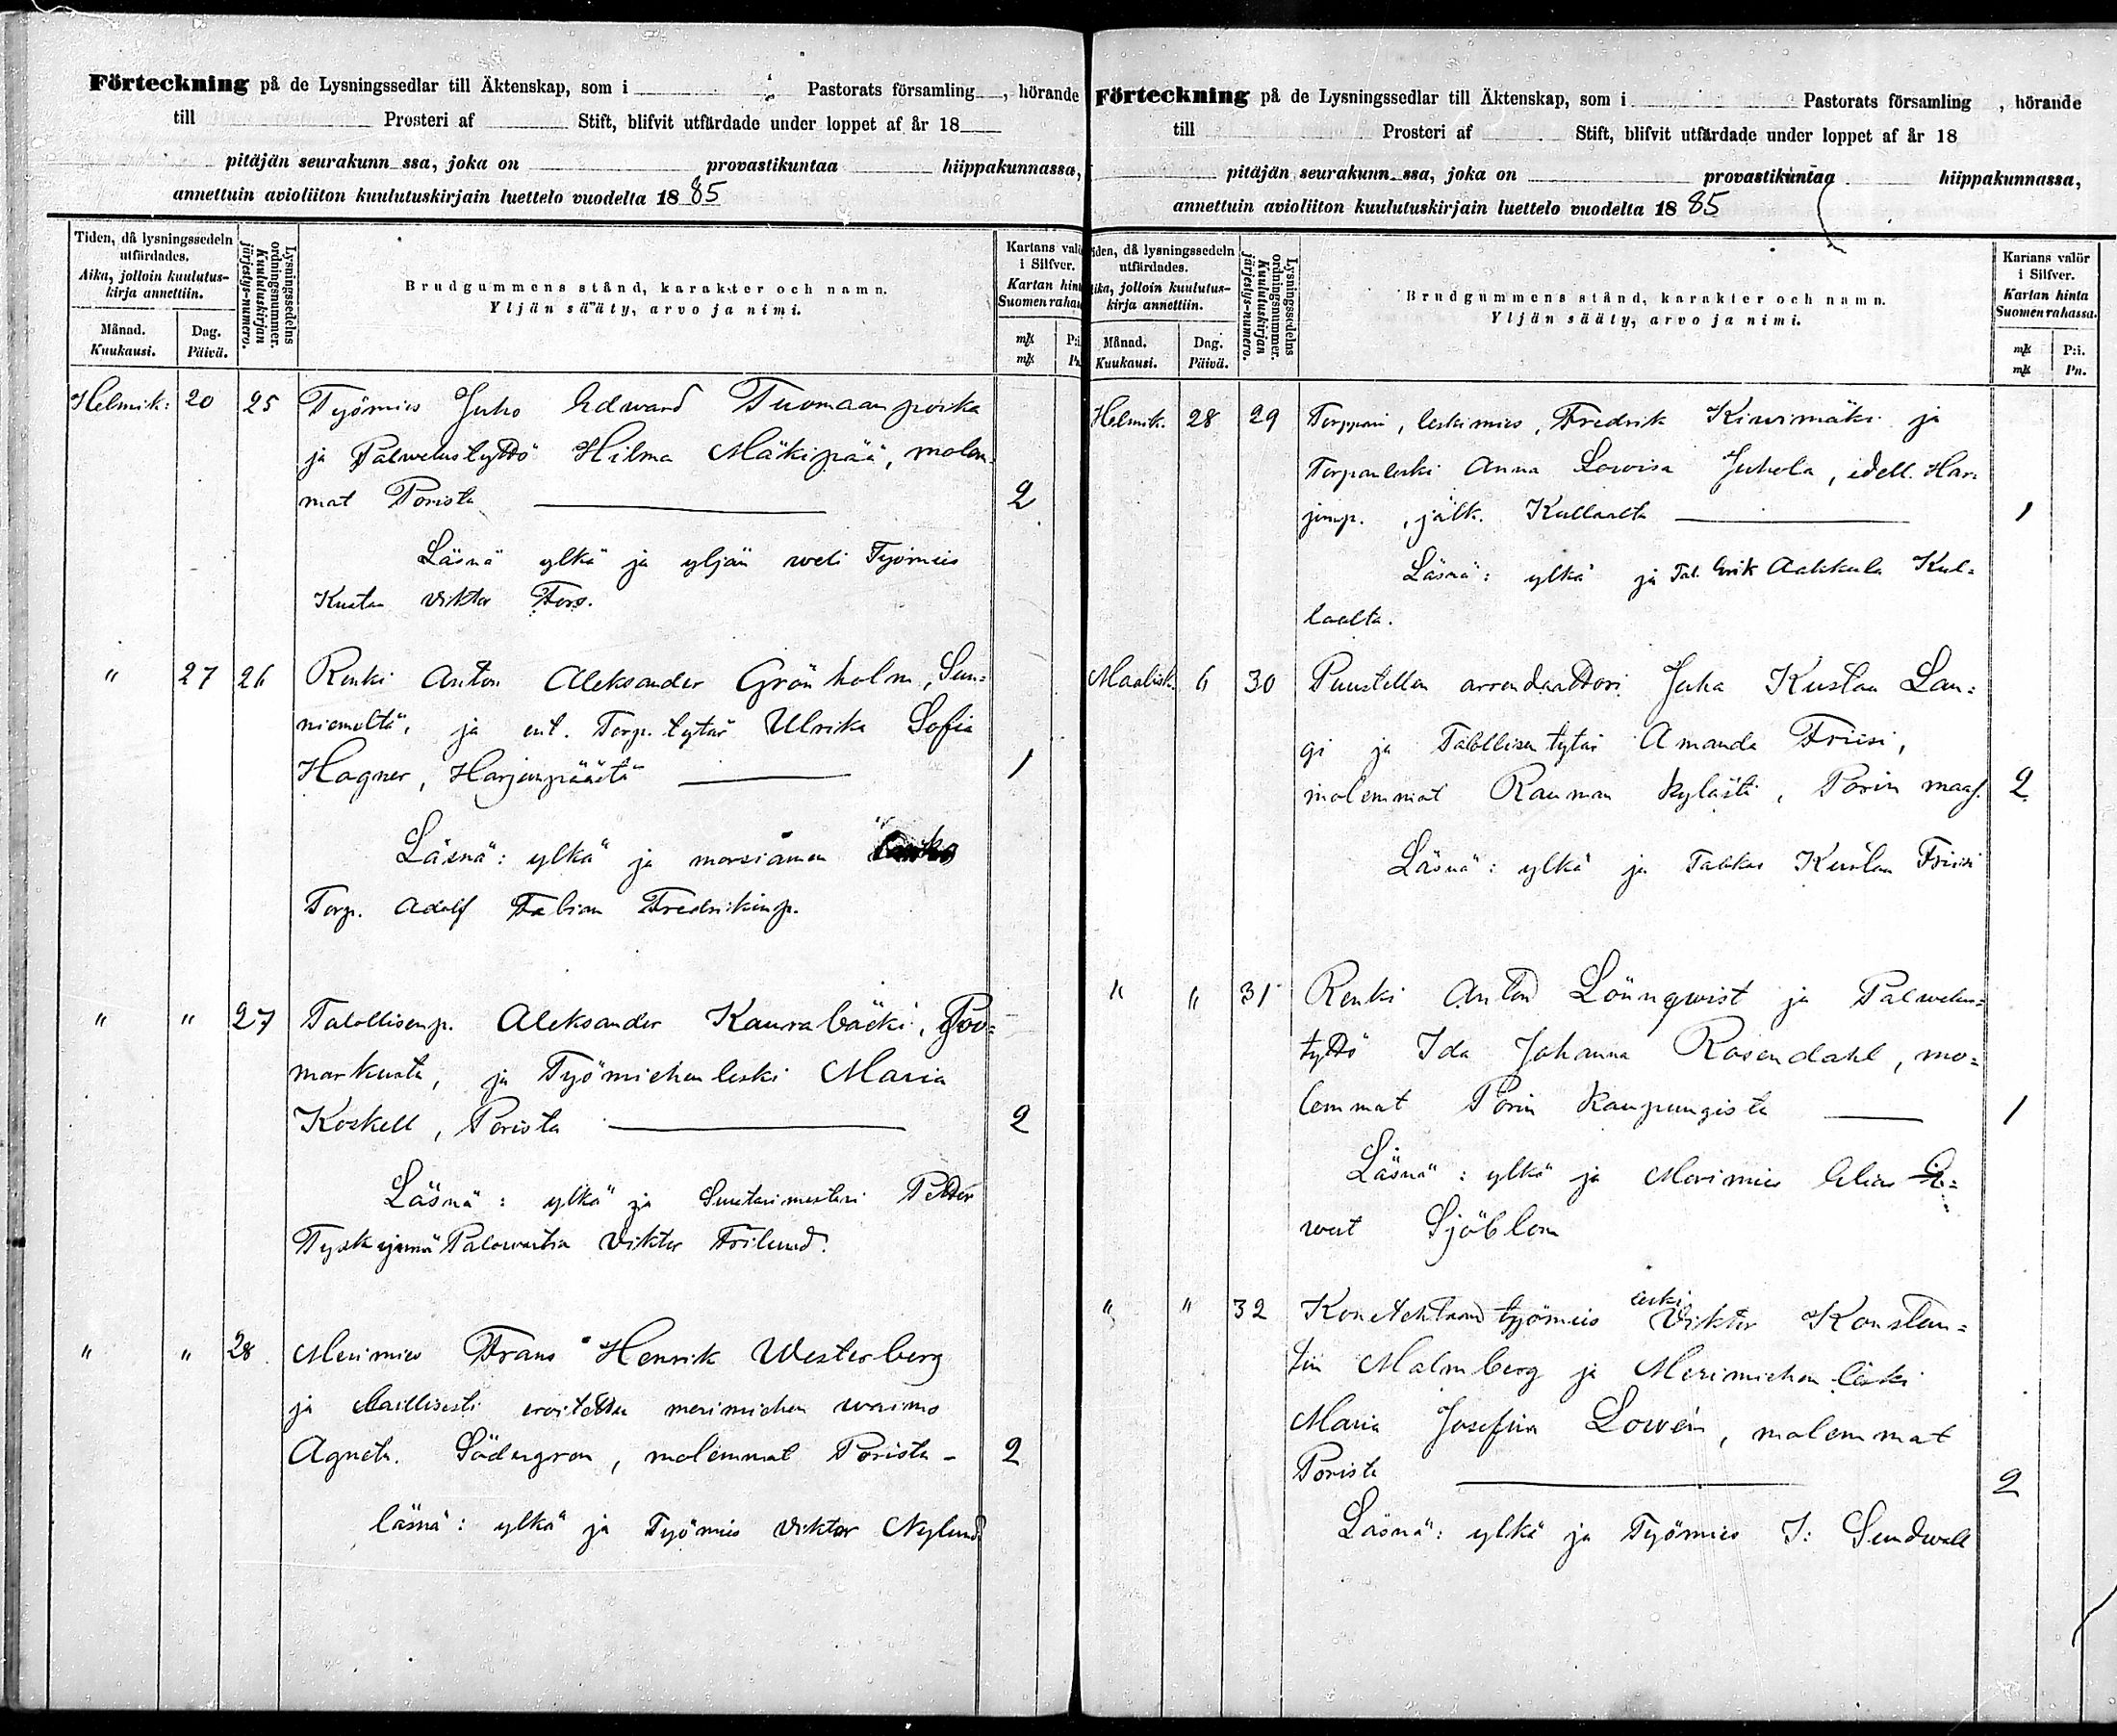 Förteckning på de Lysningssedlar till Äktenskap, som i Pastorats församling , hörande
till Prosteri af Stift, blifvit utfärdade under loppet af år 18
pitäjän seurakunn ssa, joka on provastikuntaa hiippakunnassa,
annettuin avioliiton kuulutuskirjain luettelo vuodelta 1885
Tiden, då lysningssedeln
utfärdades.
Aika, jolloin kuulutus-
kirja annettiin.
Månad.
Kuukausi.
Dag.
Päivä.
Lysningssedelns
ordningsnummer.
Kuulutuskirjan
järjestys-numero.
Brudgummens stånd, karakter och namn.
Yljän sääty, arvo ja nimi.
Kartans valö
i Silfver.
Kartan hint
Suomen rahas
mk P:i.
mk Pn
Helmik: 20 25 Työmies Juho Edward Tuomaanpoika
ja Palwelustyttö Hilma Mäkipää, molem-
mat Porista 2
Läsnä ylkä ja yljän weli Työmies
Kustaa Viktor Fors.
" 27 26 Renki Anton Aleksander Grönholm, Sun=
niemeltä, ja ent. Torp. tytär Ulrika Sofia
Hagner, Harjunpäästä 1
Läsnä: ylkä ja morsiamen
Torp. Adolf Fabian Fredrikinp.
" " 27 Talollisenp. Aleksander Kaurabäcki, Poo=
markusta, ja Työmiehen leski Maria
Koskell, Porista 2
Läsnä: ylkä ja Suutarimestari Petter
Tysk ynnä Palowartia Viktor Frilund.
" " 28 Merimies Frans Henrik Westerberg
ja laillisesti eroitettu merimiehen waimo
Agneta Södergron, molemmat Porista - 2
läsnä: ylkä ja Työmies Viktor Nylund
Förteckning på de Lysningssedlar till Äktenskap, som i Pastorats församling , hörande
till Prosteri af Stift, blifvit utfärdade under loppet af år 18
pitäjän seurakunn ssa, joka on provastikuntaa hiippakunnassa,
annettuin avioliiton kuulutuskirjain luettelo vuodelta 1885
iden, då lysningssedeln
utfärdades.
ika, jolloin kuulutus-
kirja annettiin.
Månad.
Kuukausi.
Dag.
Päivä.
Lysningssedelns
ordningsnummer.
Kuulutuskirjan
järjestys-numero.
Brudgummens stånd, karakter och namn.
Yljän sääty, arvo ja nimi.
Kartans valör
i Silfver.
Kartan hinta
Suomen rahassa.
mk P:i.
mk Pn.
Helmik. 28 29 Torppari, leskimies, Fredrik Kiwimäki ja
Torpanleski Anna Lowisa Juhola, edell. Har-
junp., jälk. Kullaalta 1
Läsnä: ylkä ja Tal. Erik Aakkula Kul=
laalta.
Maalisk. 6 30 Puustellen arrendaattori Juha Kustaa Lan=
gi ja Talollisen tytär Amanda Friisi,
molemmat Rauman kylästä, Porin maas. 2
Läsnä: ylkä ja Kustaa Friisi
" " 31 Renki Anton Lönnqwist ja Palwelus=
tyttö Ida Johanna Rosendahl, mo=
lemmat Porin kaupungista 1
Läsnä: ylkä ja Merimies Elias
Sjöblom
" " 32 työmies leski Viktor Konstan=
tin Malmberg ja Merimiehen leski
Maria Josefina Lowén, molemmat
Porista 2
Läsnä: ylkä ja Työmies J: Sundwall